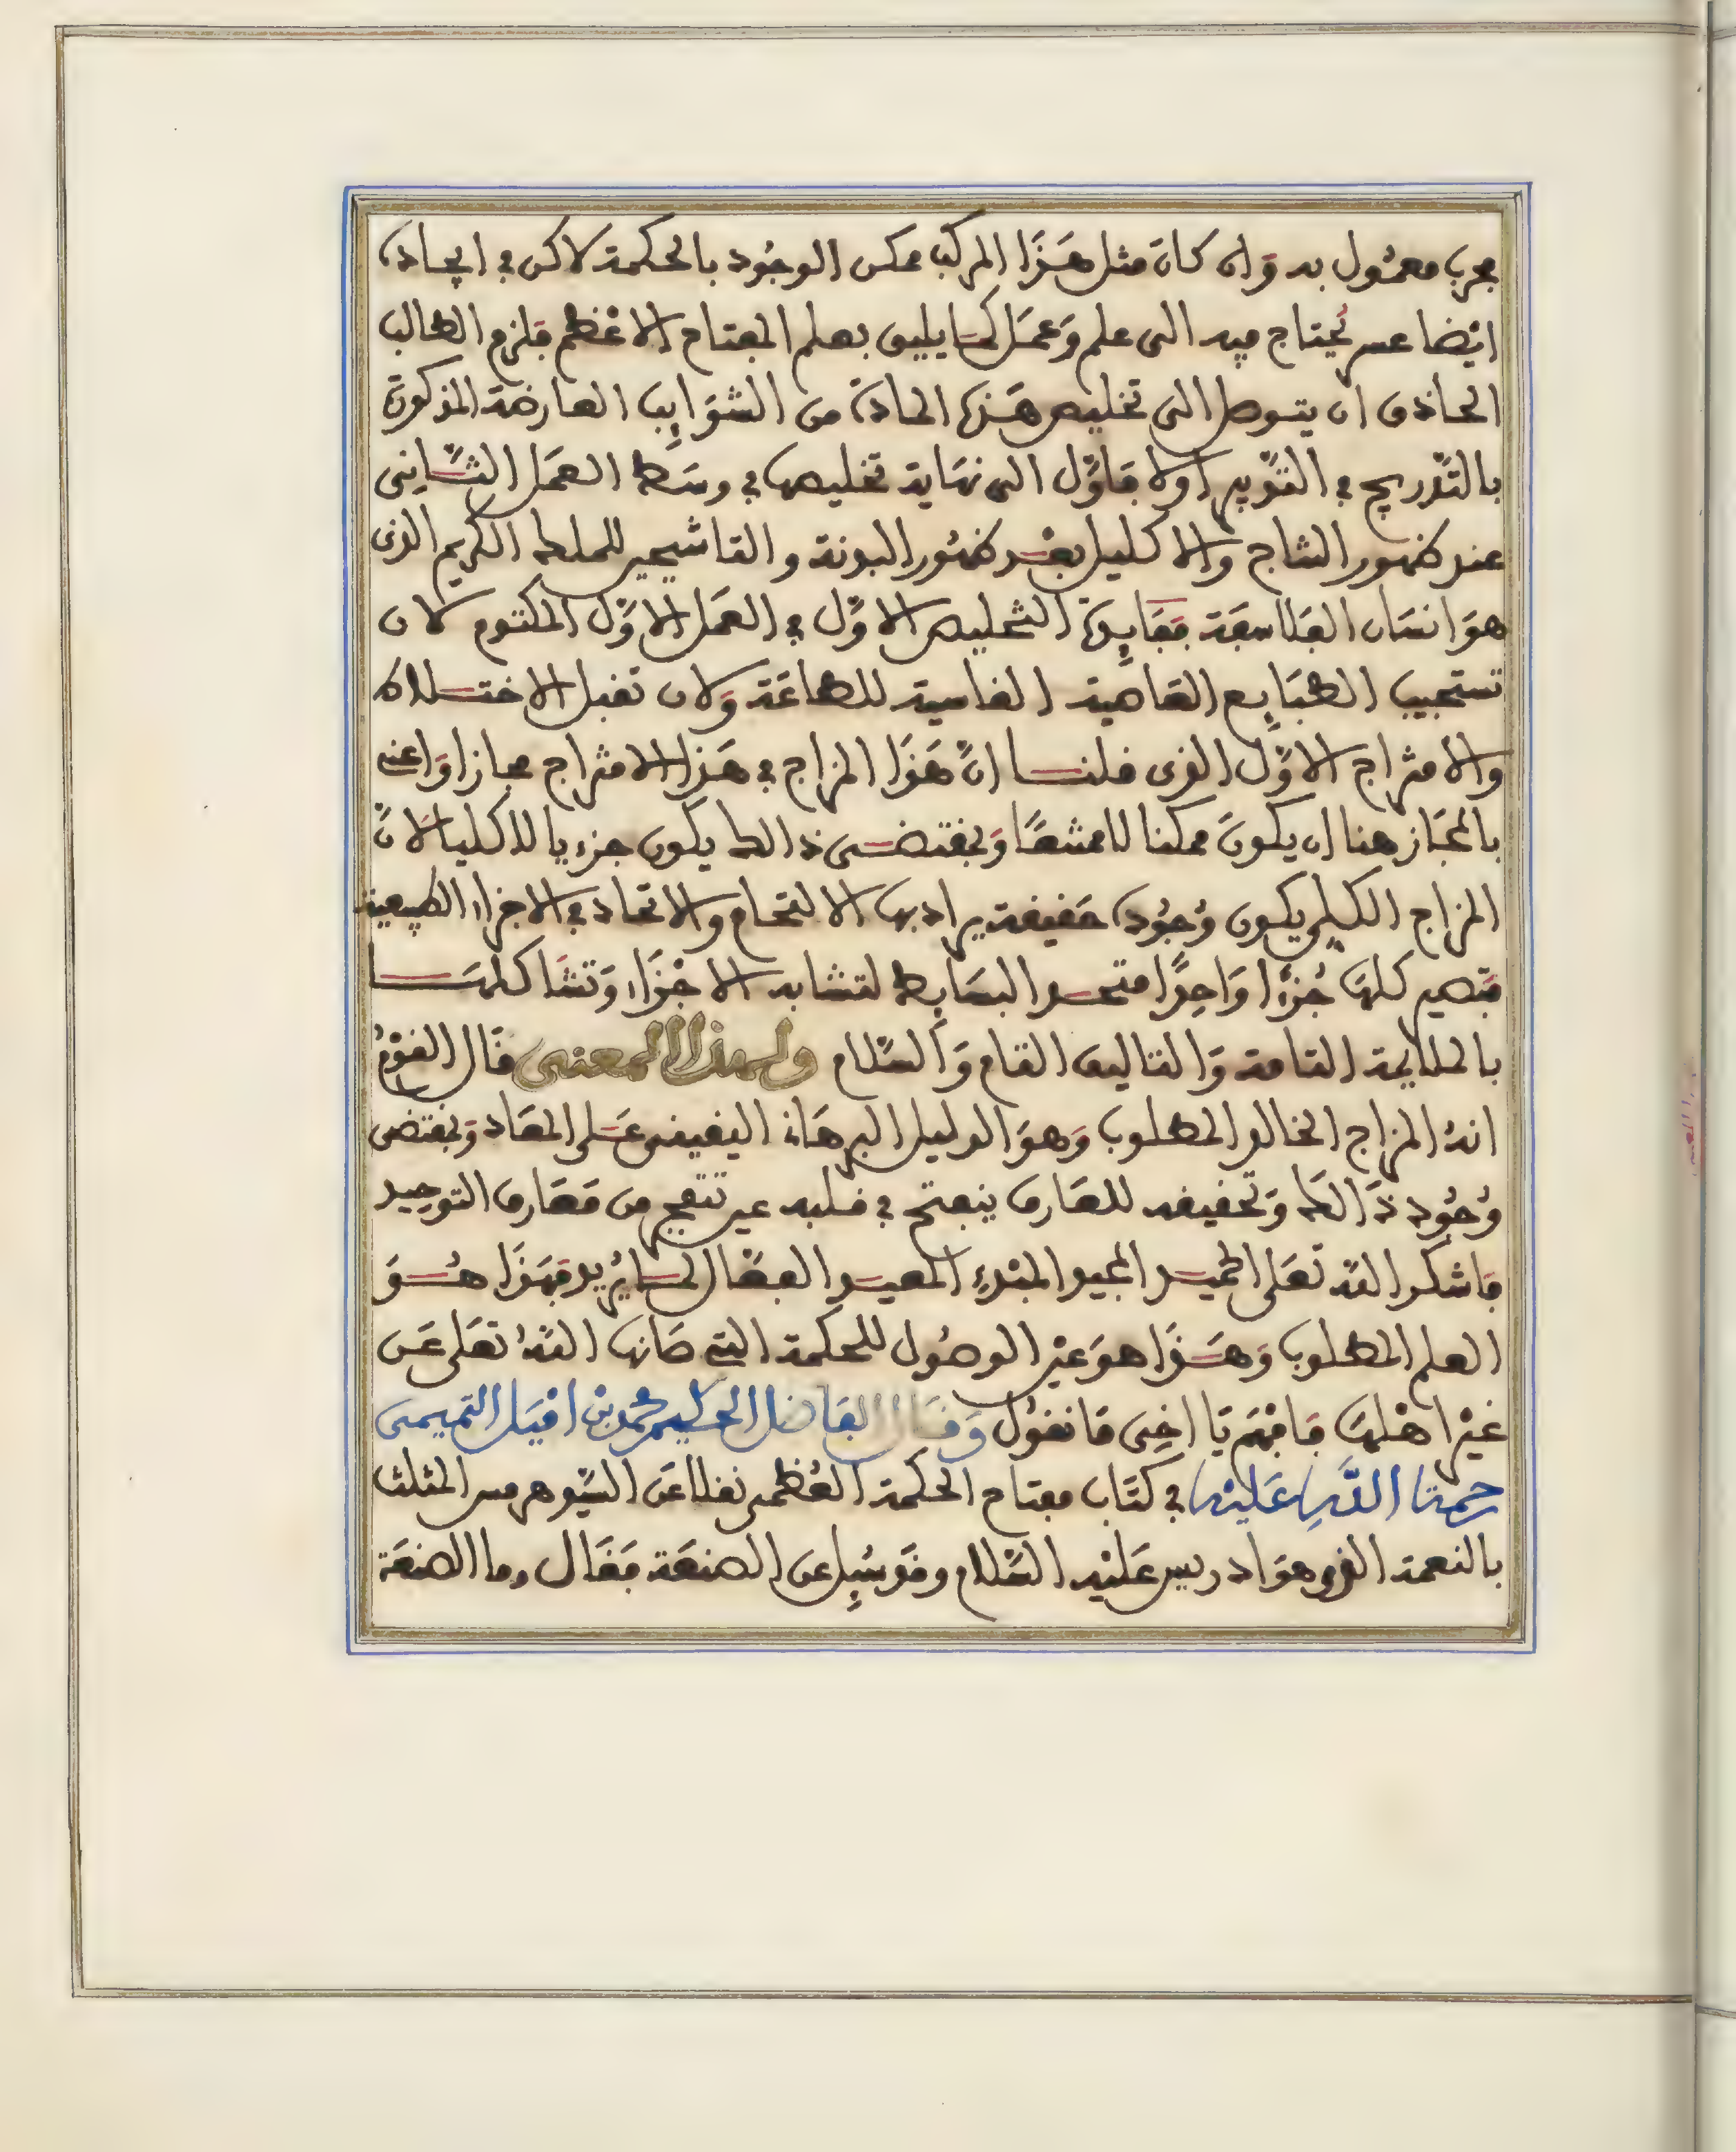 مجرب معمول به وان كان مثل هذا المركب ممكن الوجود بالحكمة لاكن في ايجاده
ايضا عسر يحتاج فيه الى علم وعمل كما يليق بعلم المفتاح الاعظم فلزم الطالب
الحاذق ان يتوصل الى تخليص هذه المادة من الشوايب العارضة المذكورة
بالتدريج في التدبير اولا فاول الى نهاية تخليصها في وسط العمل الثاني
عند ظهور التاج والاكليل بعد ظهور البونة والتاشيحير للملك الكريم الذي
هو انسان الفلاسفة ففايدة التخليص الاول في العمل الاول المكتوم لان
تستجيب الطبايع العاصية القاسية للطاعة ولان تقبل الاختلاط
والامتزاج الاول الذي قلنا ان هذا المزاج في هذا الامتزاج مجازا واعني
بالمجاز هنا ان يكون ممكنا لا ممتنعا وبمقتضى ذالك يكون جزءيا لا كليا لان
المزاج الكلي يكون وجوده حقيقة يراد بها الالتحام والاتحاد في الاجزاء الطبيعية
فتصير كلها جزءا واحدا متحد البسايط لتشابه الاجزاء وتشاكلها
بالملايمة التامة والتاليف التام والسلام ولهذا المعنى قال القوم
انه المزاج الخالد المطلوب وهو الدليل البرهان اليقيني على المعاد وبمقتضى
وجود ذالك وتحقيقه للعارف ينفتح في قلبه عين تتفجر من معارف التوحيد
فاشكر الله تعلى الحميد المجيد المبدء المعيد الفعال لما يريد فهذا هو
العلم المطلوب وهذا هو عين الوصول للحكمة التي صانها الله تعلى عن
غير اهلها فافهم يا اخي ما نقول وقال الفاضل الحكيم محمد بن اميل التميمي
رحمت الله عليه في كتاب مفتاح الحكمة العظمى نقلا عن السيد هرمس المثلث
بالنعمة الذي هو ادريس عليه السلام وقد سيل عن الصنعة فقال وما الصنعة